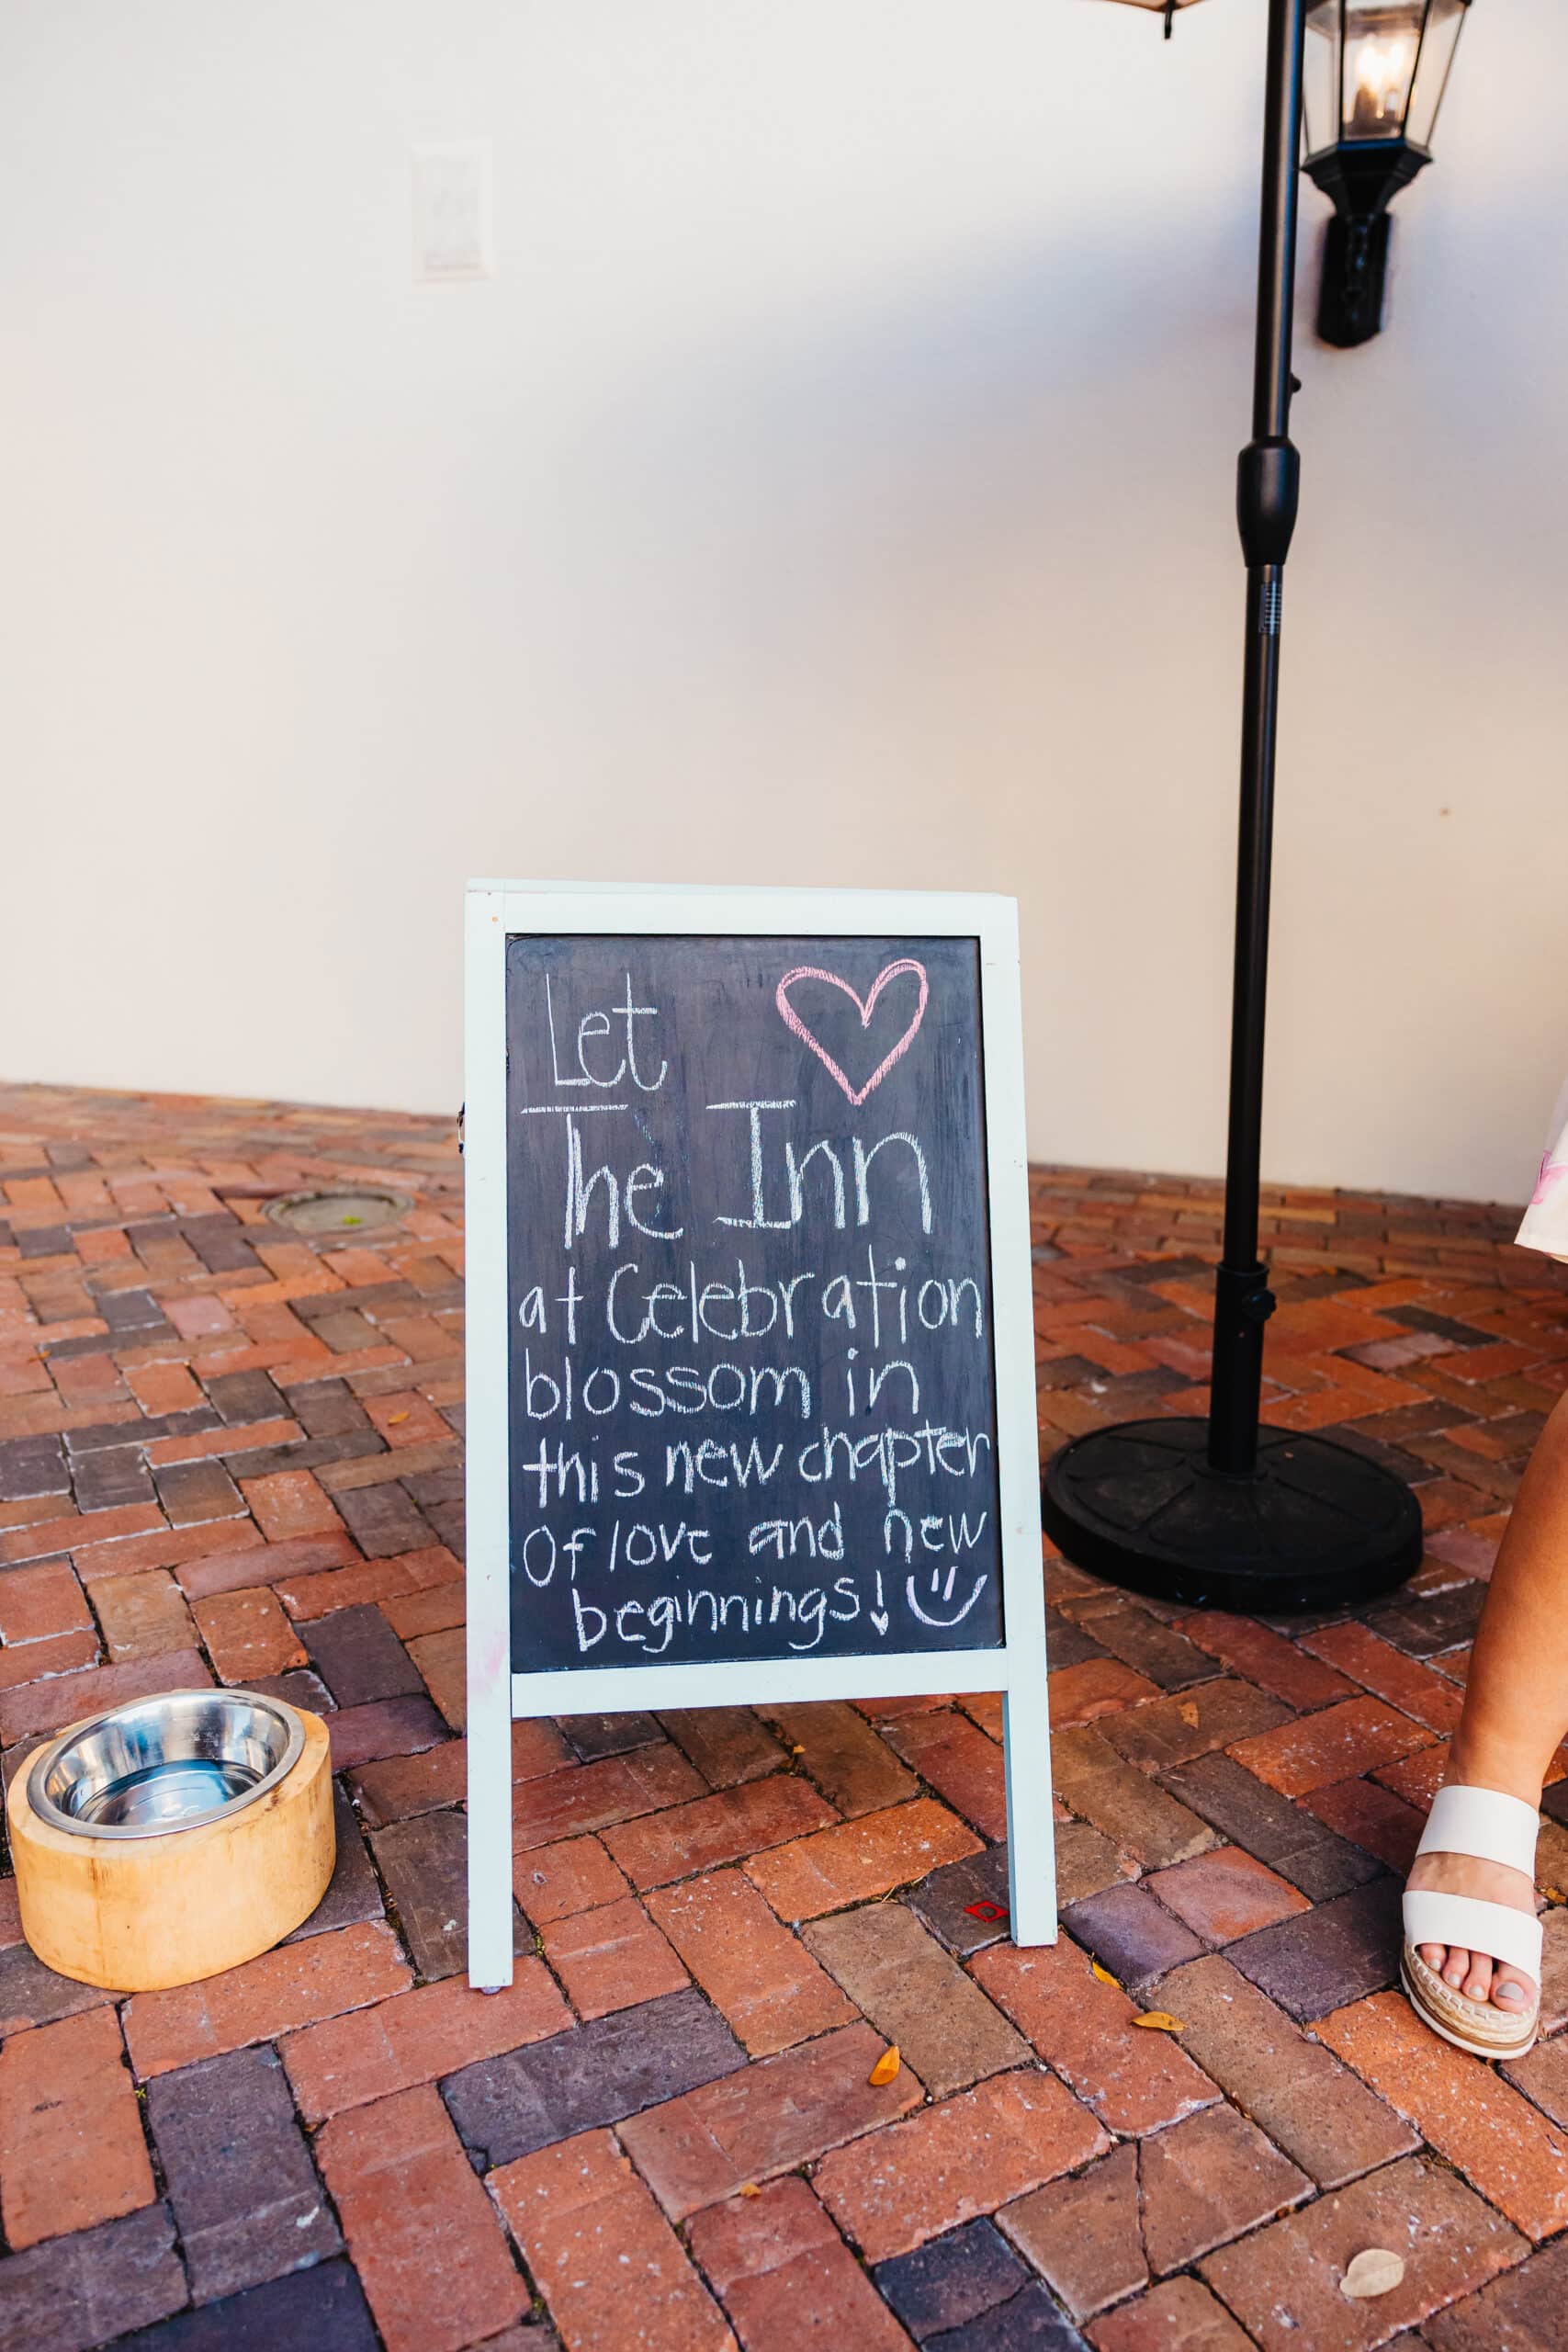 Let
The Inn
at Celebration
blossom in
this new chapter
of love and new
beginnings!